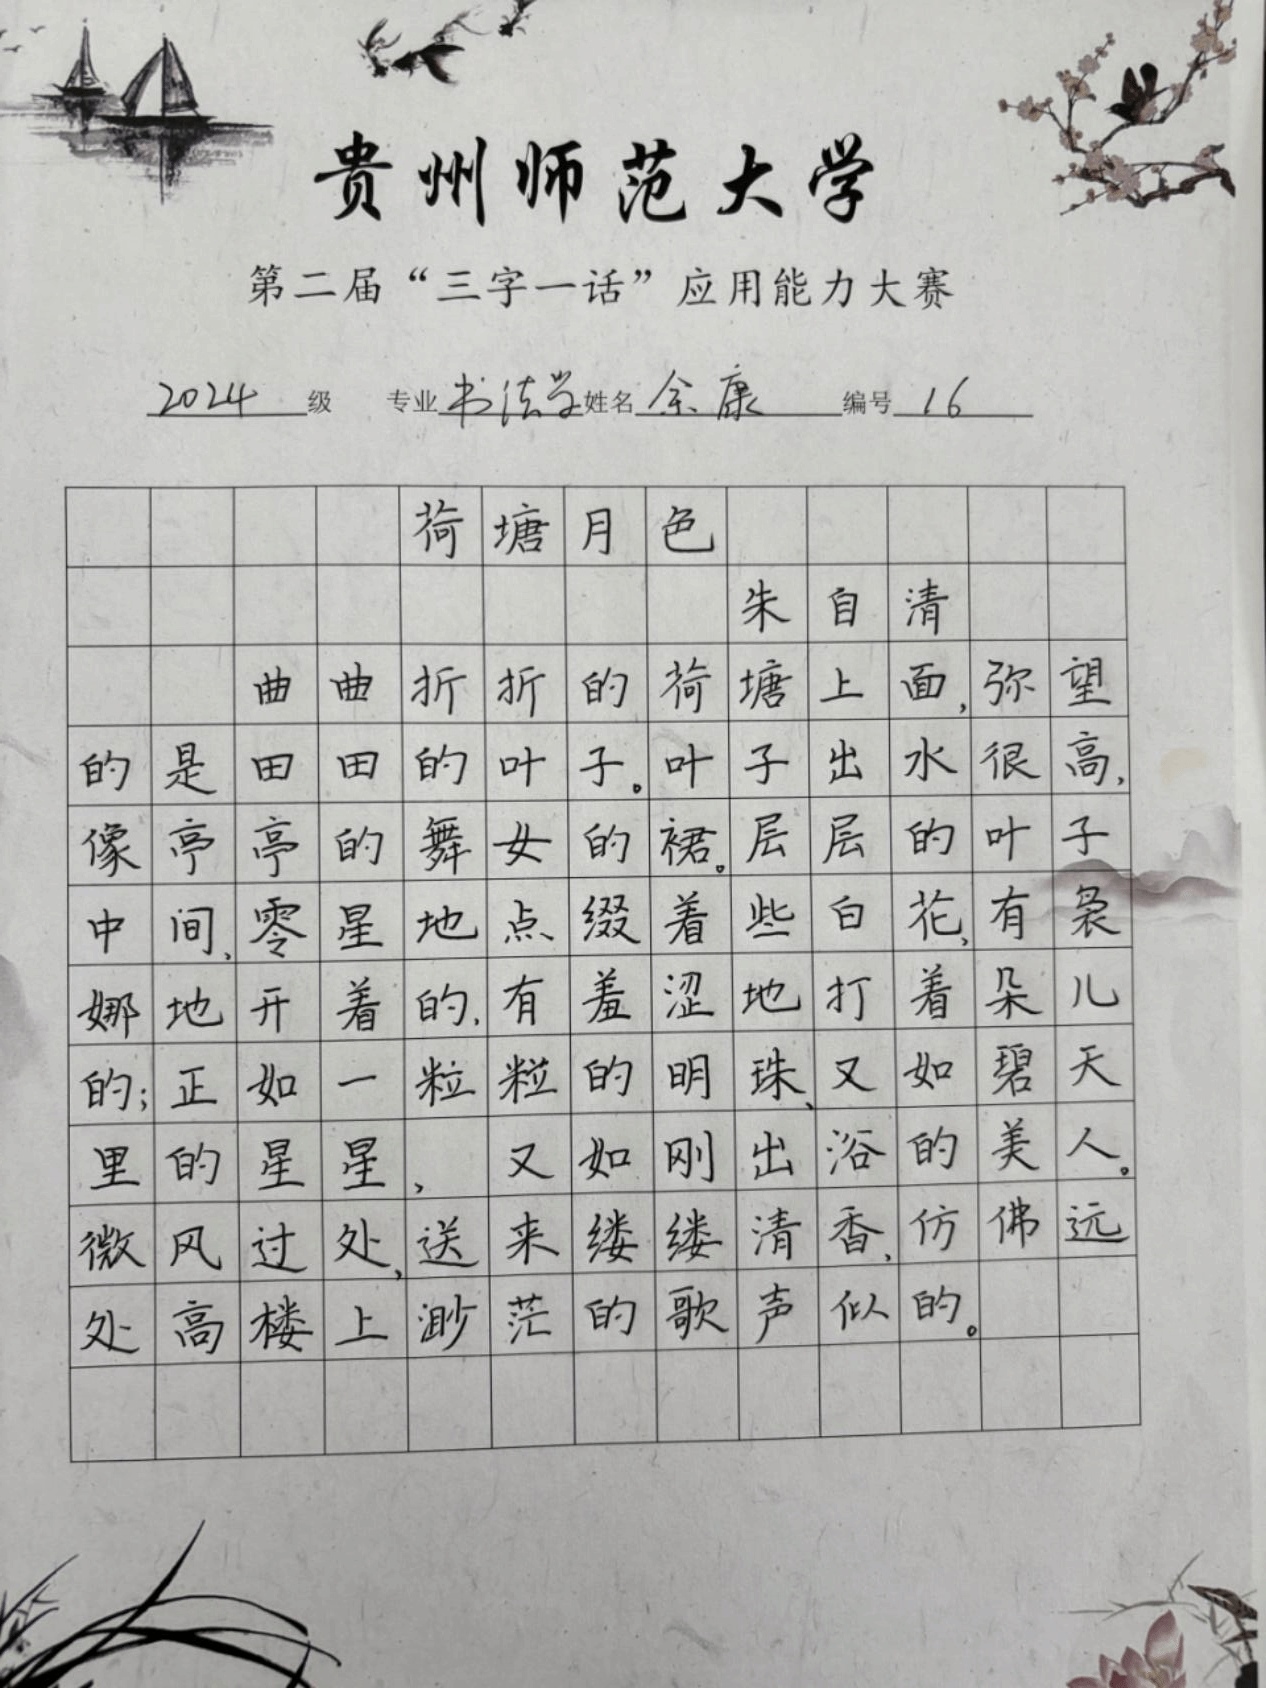 贵州师范大学
第二届“三字一话”应用能力大赛
2024级 专业书法学姓名余康 编号16
荷塘月色
朱自清
曲曲折折的荷塘上面,弥望
的是田田的叶子。叶子出水很高,
像亭亭的舞女的裙。层层的叶子
中间,零星地点缀着些白花,有袅
娜地开着的,有羞涩地打着朵儿
的;正如一粒粒的明珠,又如碧天
里的星星,又如刚出浴的美人。
微风过处,送来缕缕清香,仿佛远
处高楼上渺茫的歌声似的。